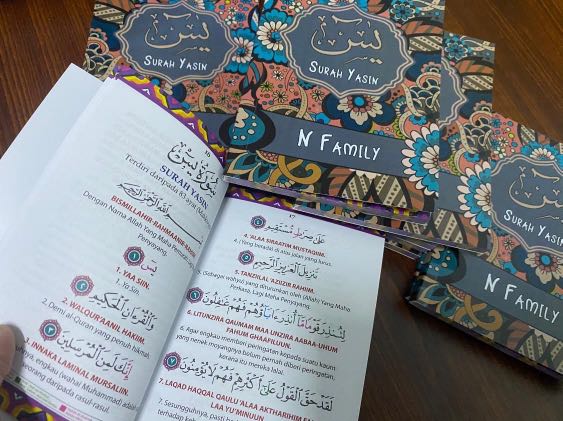 يس
SURAH YASIN
يس
SURAH YASIN
N FAMILY
يس
SURAH YASIN
N FAMILY
سورة يس
SURAH YASIN
Terdiri daripada 83 ayat
BISMILLAHIR-RAHMAANIR-
Dengan Nama Allah Yang Maha
Penyayang.
يس
1. YAA SIIN.
1. Ya Sin.
وَالْقُرْآنِ الْحَكِيمِ
2. WALQUR'AANIL HAKIM.
2. Demi al-Quran yang penuh hikmah.
إِنَّكَ لَمِنَ الْمُرْسَلِينَ
3. INNAKA LAMINAL MURSALIIN.
(wahai Muhammad) adalah
seorang daripada rasul-rasul.
عَلَى صِرَاطٍ مُسْتَقِيمٍ
4. 'ALAA SIRAATIM MUSTAQIIM.
4. (Yang berada) di atas jalan yang lurus.
تَنْزِيلَ الْعَزِيزِ الرَّحِيمِ
5. TANZIILAL 'AZIZIR RAHIIM.
5. (Sebagai wahyu) yang diturunkan oleh (Allah) Yang Maha
Perkasa, Lagi Maha Penyayang.
لِتُنْذِرَ قَوْمًا مَا أُنْذِرَ آبَاؤُهُمْ فَهُمْ غَافِلُونَ
6. LITUNZIRA QAUMAM MAA UNZIRA AABAA-UHUM
FAHUM GHAAFILUUN.
6. Agar engkau memberi peringatan kepada suatu kaum
yang nenek moyangnya belum pernah diberi peringatan,
kerana itu mereka lalai.
لَقَدْ حَقَّ الْقَوْلُ عَلَى أَكْثَرِهِمْ فَهُمْ لَا يُؤْمِنُونَ
7. LAQAD HAQQAL QAULU 'ALAA AKTHARIHIM
LAA YU'MINUUN
7. Sesungguhnya, pasti
terhadap